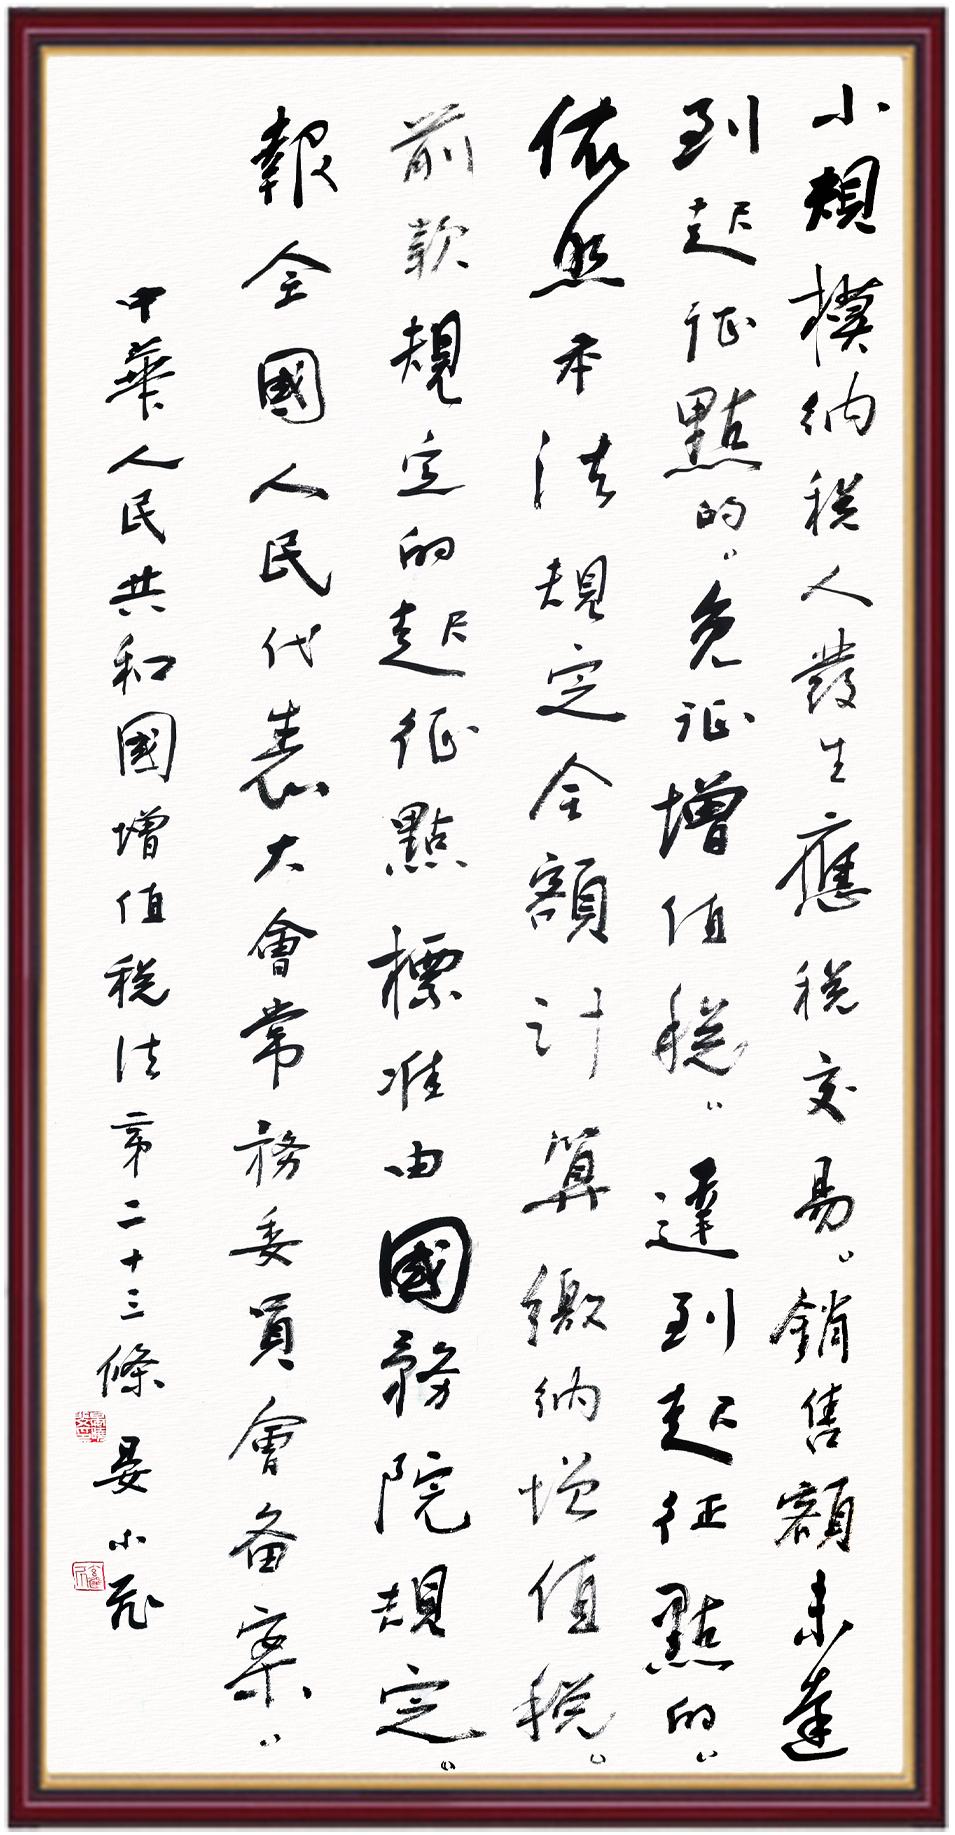 小規模納税人發生應税交易。銷售額未達
到起征點的。免征增值税。達到起征點的。
依照本法規定全額計算繳納增值税。
前款規定的起征點標准由國務院規定。
報全國人民代表大會常務委員會备案。
中華人民共和國增值税法第二十三條 晏小